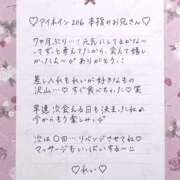 ♡アイネイン 206 本指のお兄さん♡
7ヶ月ぶり…!元気にしてるかな〜
ってずっと考えてたから、会えて嬉し
かったよ〜♡ありがとう♪
差し入れもれいが好きなもの
沢山…♡すぐ食べちゃった♡笑
早速次会える日も決まったねめ
今から楽しく登録するね♡
次は〇回…リベンジさせてね♡
マッサージもいっぱいするー♡
♡れい♡